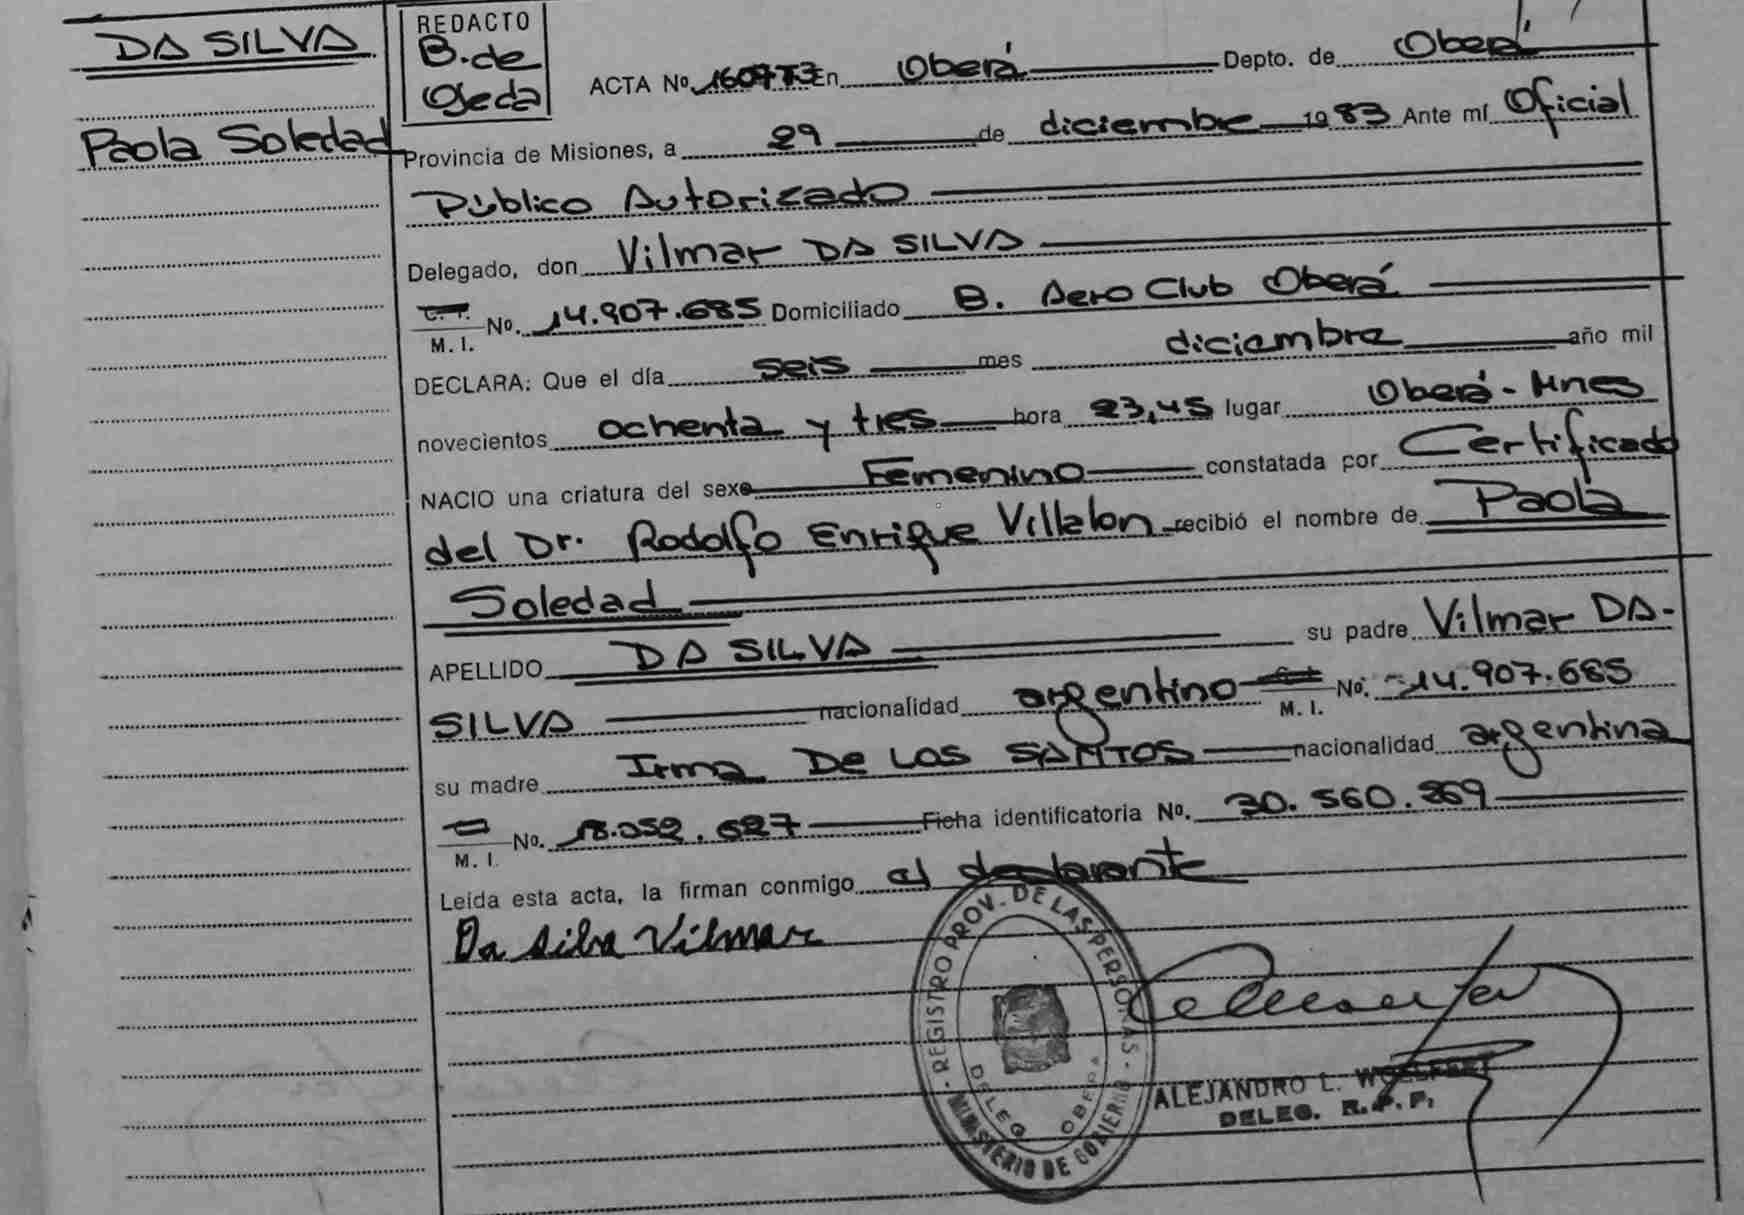 DA SILVA
Paola Soledad
REDACTO
B. de
Ojeda
ACTA No. 160773 En Oberá Depto. de Oberá
Provincia de Misiones, a 29 de diciembre 1983 Ante mí Oficial
Público Autorizado
Delegado, don Vilmar DA SILVA
M. I. No. 14.907.685 Domiciliado B. Aero Club Oberá
DECLARA: Que el día seis mes diciembre año mil
novecientos ochenta y tres hora 23,45 lugar Oberá - Mnes
NACIO una criatura del sexo Femenino constatada por Certificado
del Dr. Rodolfo Enrique Villalon recibió el nombre de Paola
Soledad
APELLIDO DA SILVA su padre Vilmar DA-
SILVA nacionalidad argentino M. I. No. 14.907.685
su madre Irma De LOS SANTOS nacionalidad argentina
M. I. No. 18.052.627 Ficha identificatoria No. 30.560.269
Leída esta acta, la firman conmigo el declarante
Da Silva Vilmar
REGISTRO PROV. DE LAS PERSONAS
MINISTERIO DE GOBIERNO
DELEG. OBERA
ALEJANDRO L.
DELEG. R.P.P.